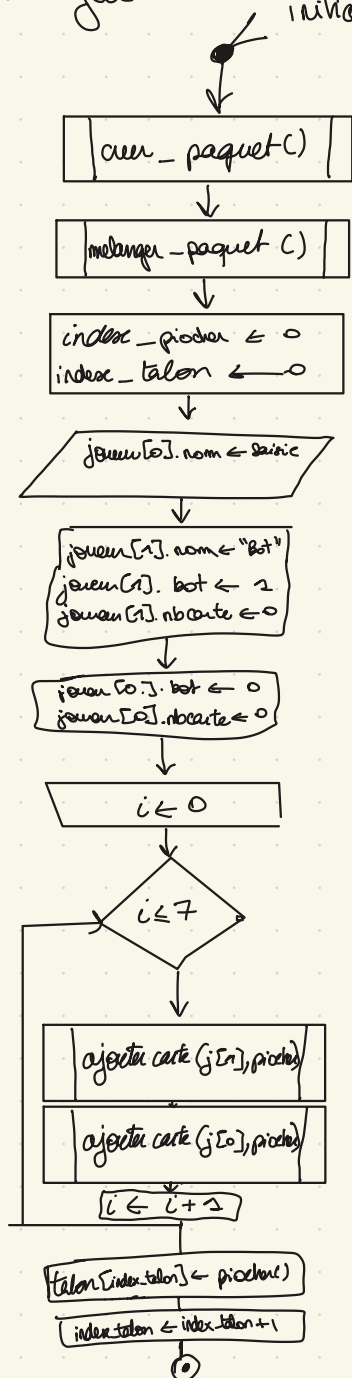 creer_paquet()
melanger_paquet ()
index_piocher ← 0
index_talon ← 0
joueur[0].nom ← saisie
joueur[1].nom ← "Bot"
joueur[1].bot ← 1
joueur[1].nbcarte ← 0
joueur[0].bot ← 0
joueur[0].nbcarte ← 0
i ← 0
i ≤ 7
ajouter carte (j[1], piocher)
ajouter carte (j[0], piocher)
i ← i+1
talon[index_talon] ← piocher()
index_talon ← index_talon+1